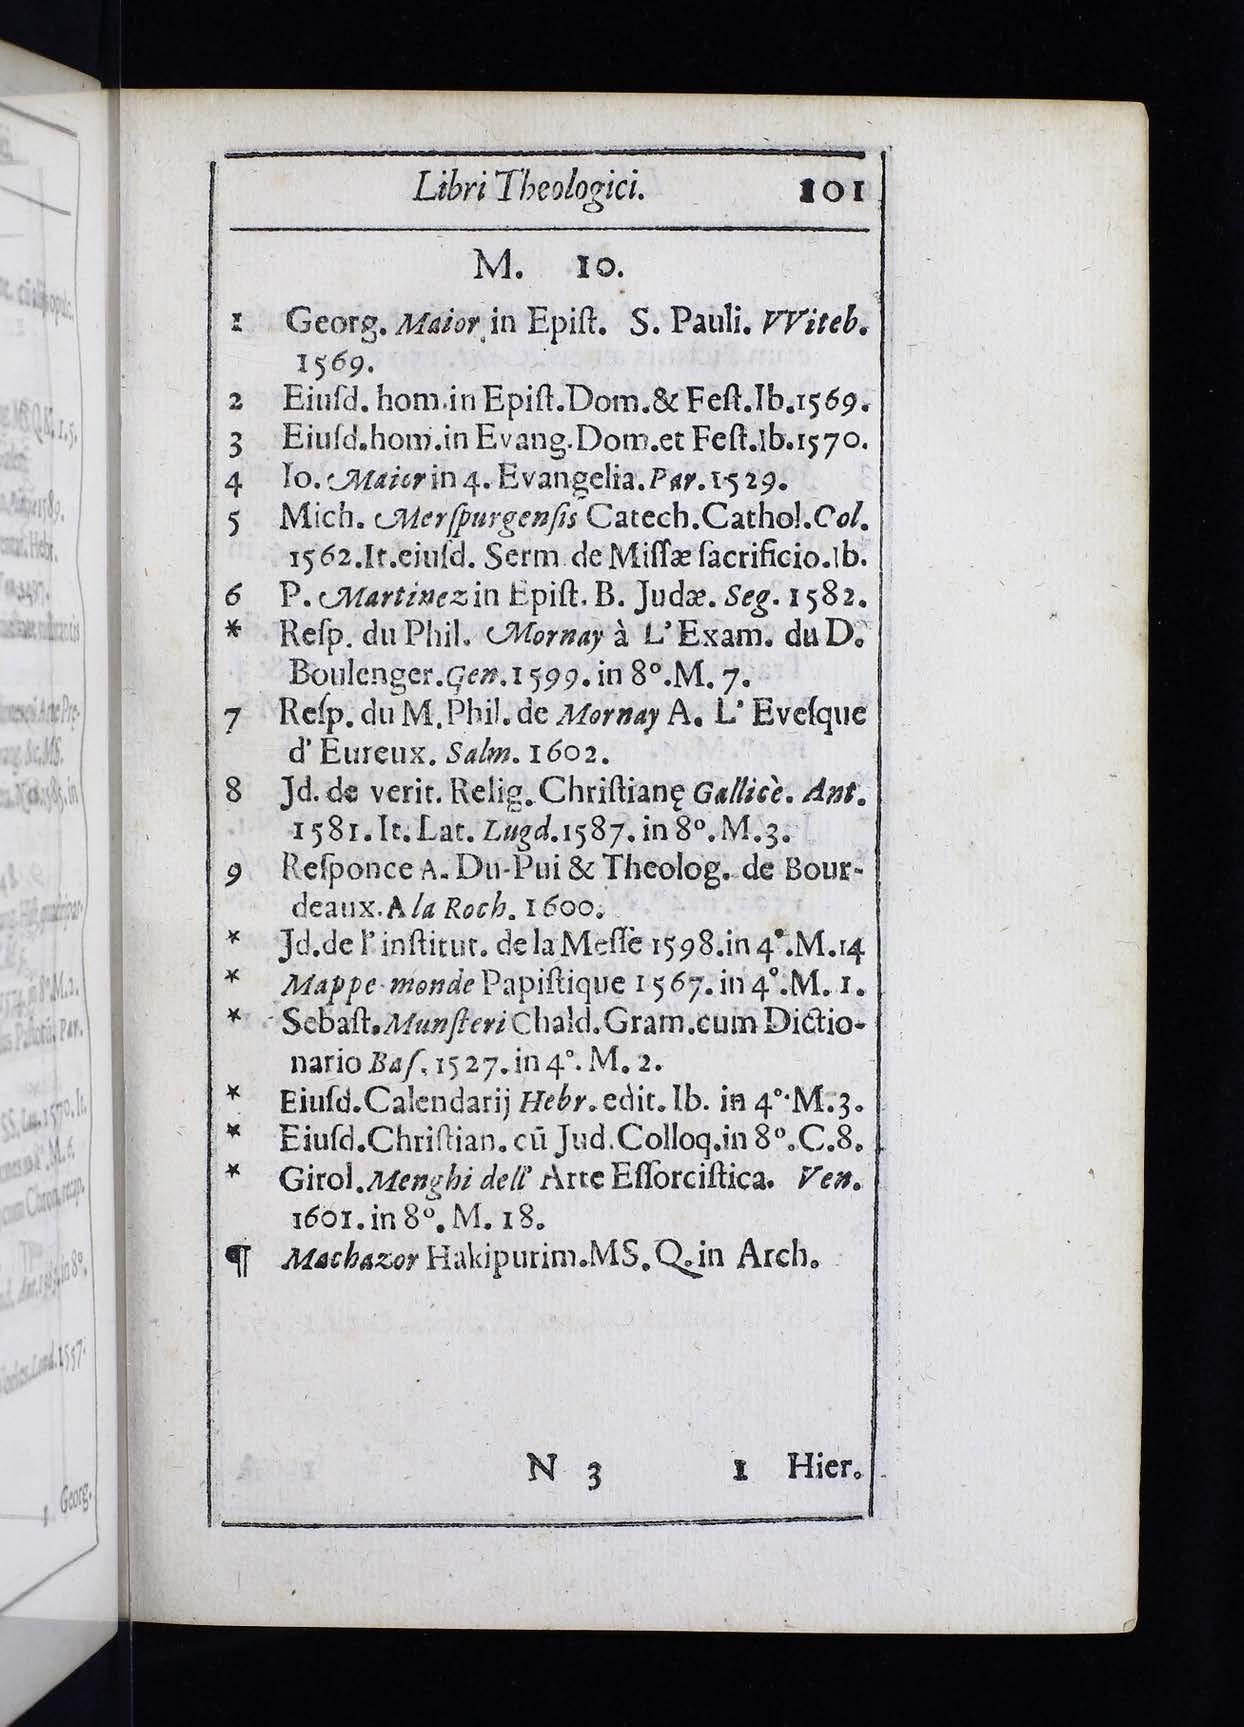 Libri Theologici. 101
M. 10.
1 Georg. Maior in Epiſt. S. Pauli. VViteb.
1569.
2 Eiuſd. hom.in Epiſt.Dom.& Feſt.Ib.1569.
3 Eiuſd.hom.in Evang.Dom.et Feſt.Ib.1570.
4 Io. Maior in 4. Evangelia. Par. 1529.
5 Mich. Merſpurgenſis Catech.Cathol.Col.
1562.It.eiuſd. Serm.de Miſſæ ſacrificio.Ib.
6 P. Martinez in Epiſt. B. Judæ. Seg. 1582.
* Reſp. du Phil. Mornay à L'Exam. du D.
Boulenger.Gen.1599.in 8º.M. 7.
7 Reſp. du M.Phil. de Mornay A. L' Eveſque
d' Eureux. Salm. 1602.
8 Jd. de verit. Relig. Chriſtianę Gallicè. Ant.
1581.It. Lat. Lugd.1587. in 8º. M.3.
9 Reſponce A. Du-Pui & Theolog. de Bour-
deaux. A la Roch. 1600.
* Jd.de l' inſtitut. de la Meſſe 1598.in 4º.M.14
* Mappe-monde Papiſtique 1567. in 4º.M. 1.
* Sebaſt. Munſteri Chald.Gram.cum Dictio-
nario Baſ. 1527. in 4º. M. 2.
* Eiuſd.Calendarij Hebr. edit. Ib. in 4º.M.3.
* Eiuſd.Chriſtian. cū Jud.Colloq.in 8º.C.8.
* Girol.Menghi dell' Arte Eſſorciſtica. Ven.
1601. in 8º. M. 18.
¶ Machazor Hakipurim.MS.Q.in Arch.
N 3 1 Hier.
1 Georg.